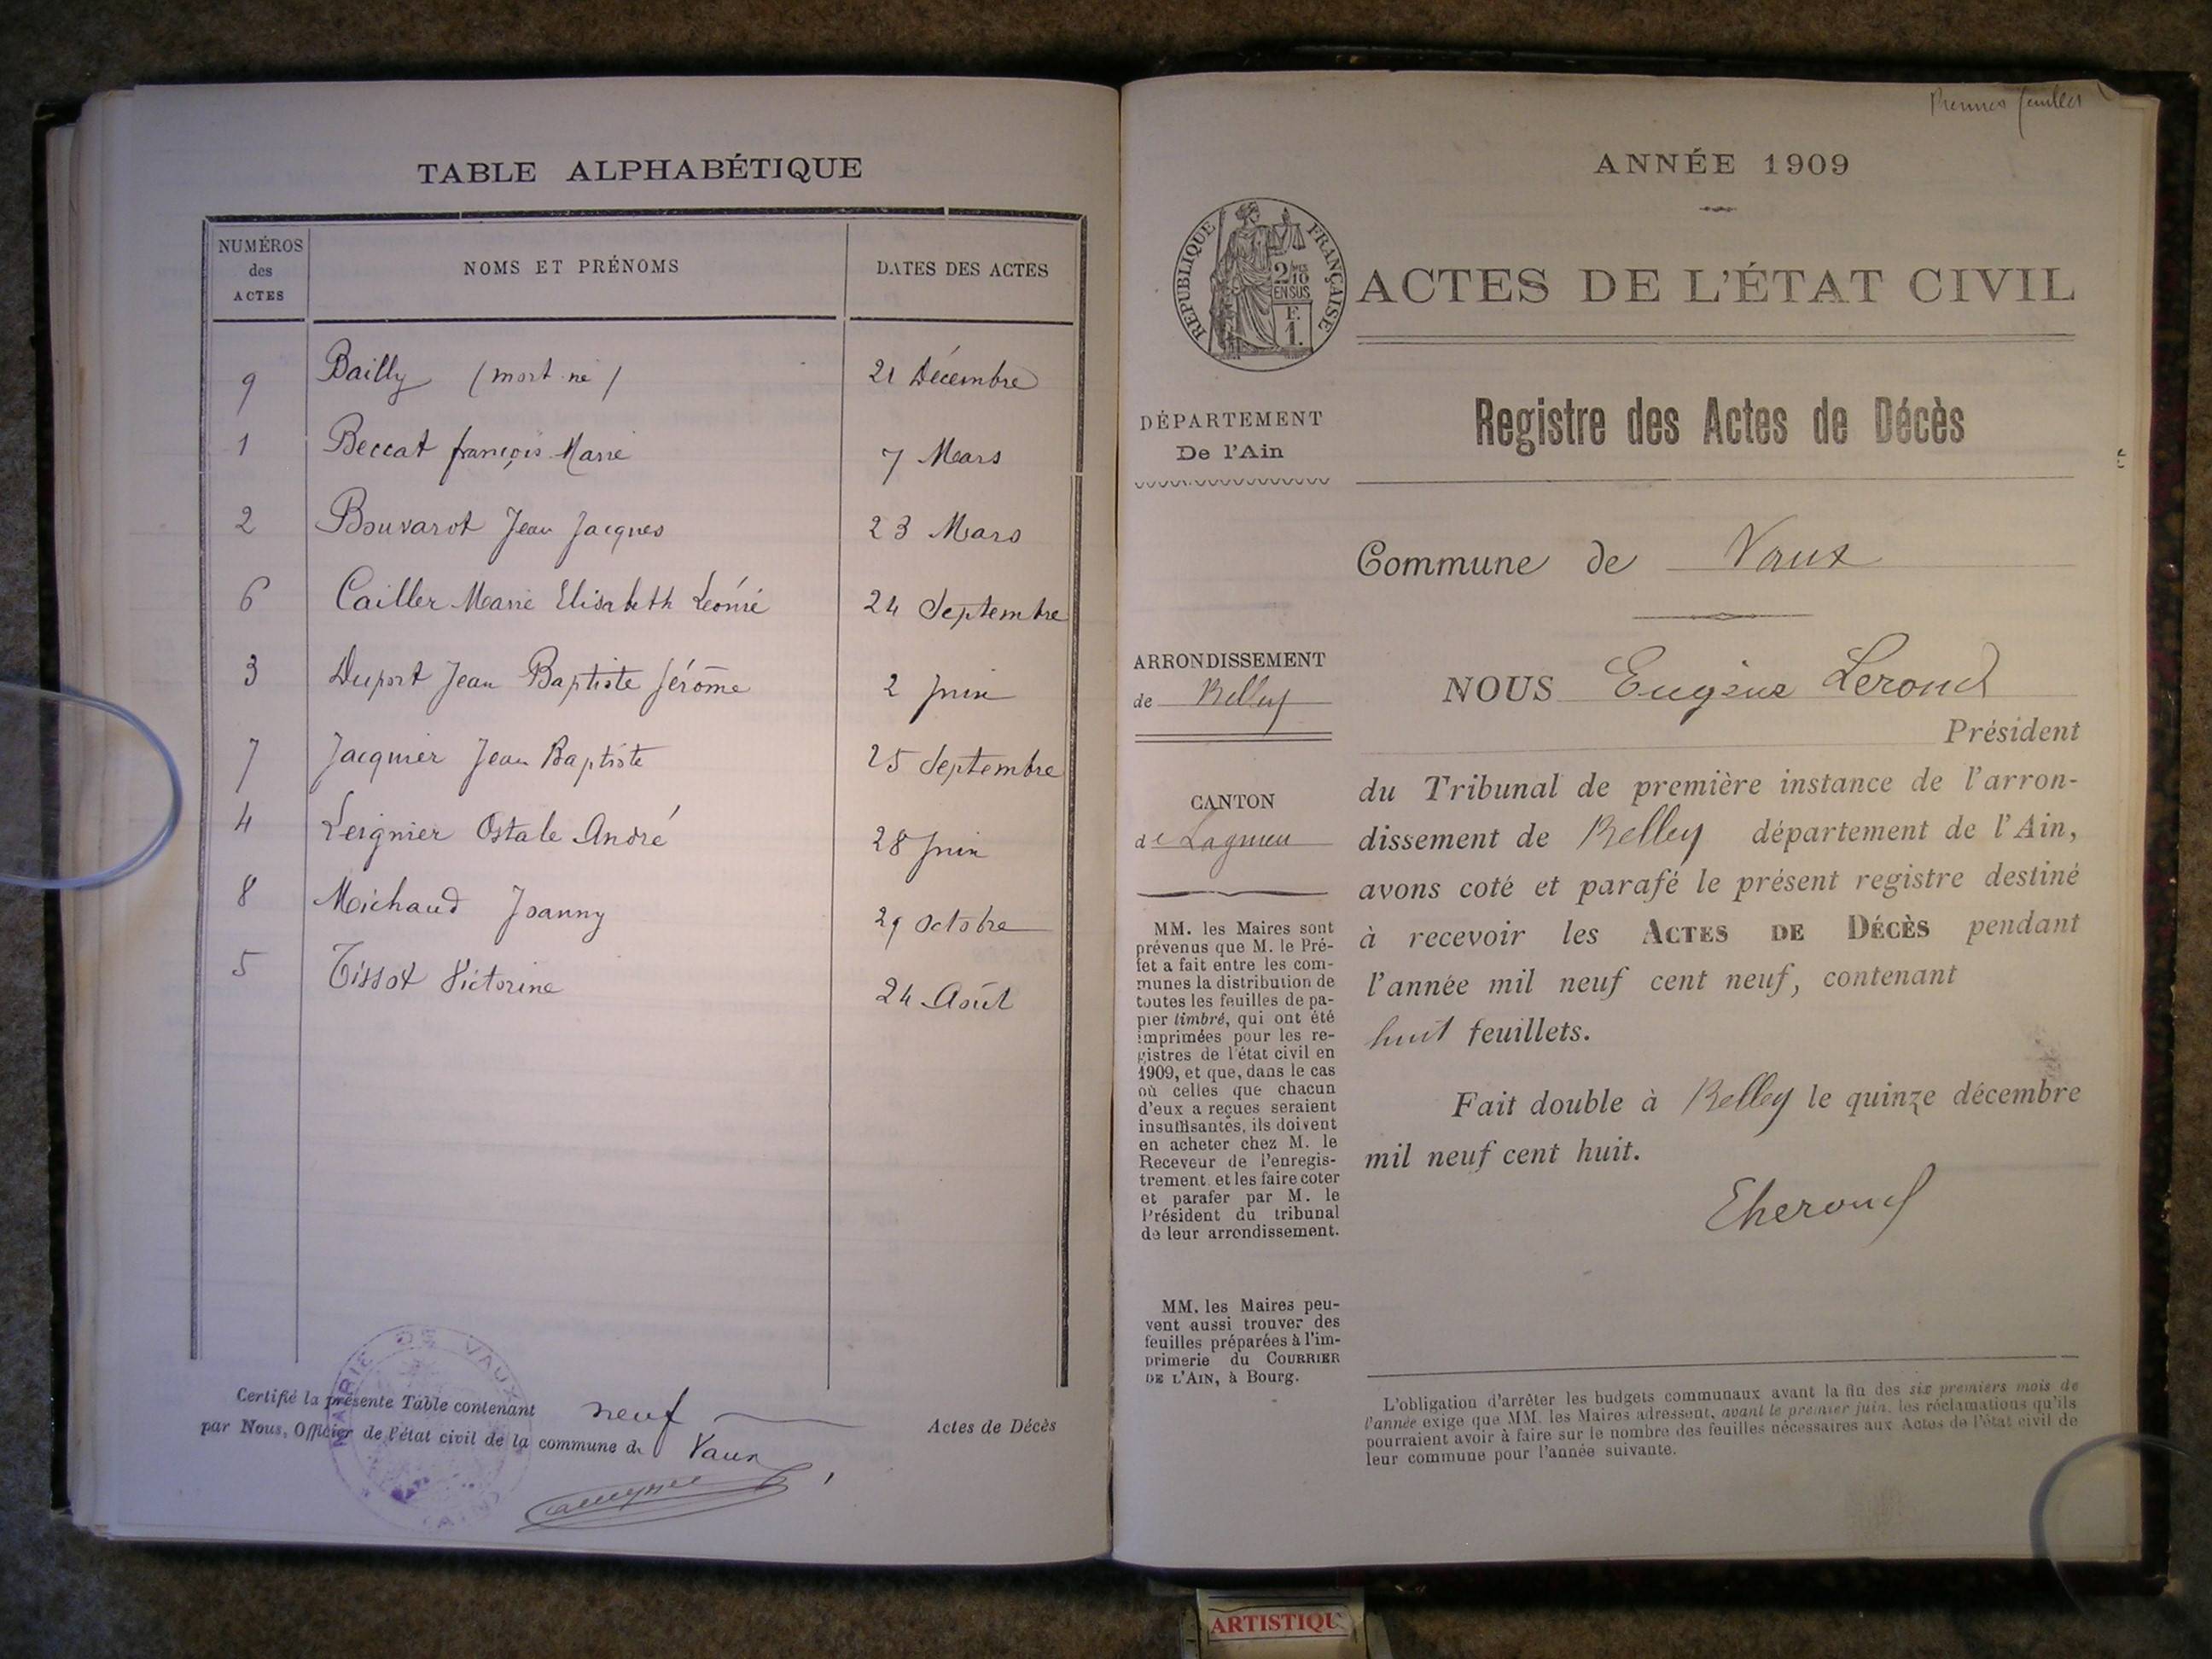 TABLE ALPHABÉTIQUE
NUMÉROS des ACTES
NOMS ET PRÉNOMS
DATES DES ACTES
9 Bailly (mort né) 21 Décembre
1 Beccat françois Marie 7 Mars
2 Bouvarot Jean Jacques 23 Mars
6 Cailler Marie Elisabeth Léonie 24 Septembre
3 Duport Jean Baptiste Jérôme 2 Juin
7 Jacquier Jean Baptiste 25 Septembre
4 Leignier Ostale André 28 Juin
8 Michaud Joanny 29 Octobre
5 Tissot Victorine 24 Août
MAIRIE DE VAUX
(AIN)
Certifié la présente Table contenant neuf Actes de Décès
par Nous, Officier de l'état civil de la commune de Vaux
Premier feuillet
ANNÉE 1909
RÉPUBLIQUE FRANÇAISE
2/10 EN SUS
F. 1.
ACTES DE L'ÉTAT CIVIL
DÉPARTEMENT
De l'Ain
Registre des Actes de Décès
Commune de Vaux
ARRONDISSEMENT
de Belley
CANTON
de Lagnieu
MM. les Maires sont
prévenus que M. le Pré-
fet a fait entre les com-
munes la distribution de
toutes les feuilles de pa-
pier timbré, qui ont été
imprimées pour les re-
gistres de l'état civil en
1909, et que, dans le cas
où celles que chacun
d'eux a reçues seraient
insuffisantes, ils doivent
en acheter chez M. le
Receveur de l'enregis-
trement, et les faire coter
et parafer par M. le
Président du tribunal
de leur arrondissement.
MM. les Maires peu-
vent aussi trouver des
feuilles préparées à l'im-
primerie du COURRIER
DE L'AIN, à Bourg.
NOUS Eugène
Président
du Tribunal de première instance de l'arron-
dissement de Belley département de l'Ain,
avons coté et parafé le présent registre destiné
à recevoir les ACTES DE DÉCÈS pendant
l'année mil neuf cent neuf, contenant
huit feuillets.
Fait double à Belley le quinze décembre
mil neuf cent huit.
L'obligation d'arrêter les budgets communaux avant la fin des six premiers mois de
l'année exige que MM. les Maires adressent, avant le premier juin, les réclamations qu'ils
pourraient avoir à faire sur le nombre des feuilles nécessaires aux Actes de l'état civil de
leur commune pour l'année suivante.
ARTISTIQU